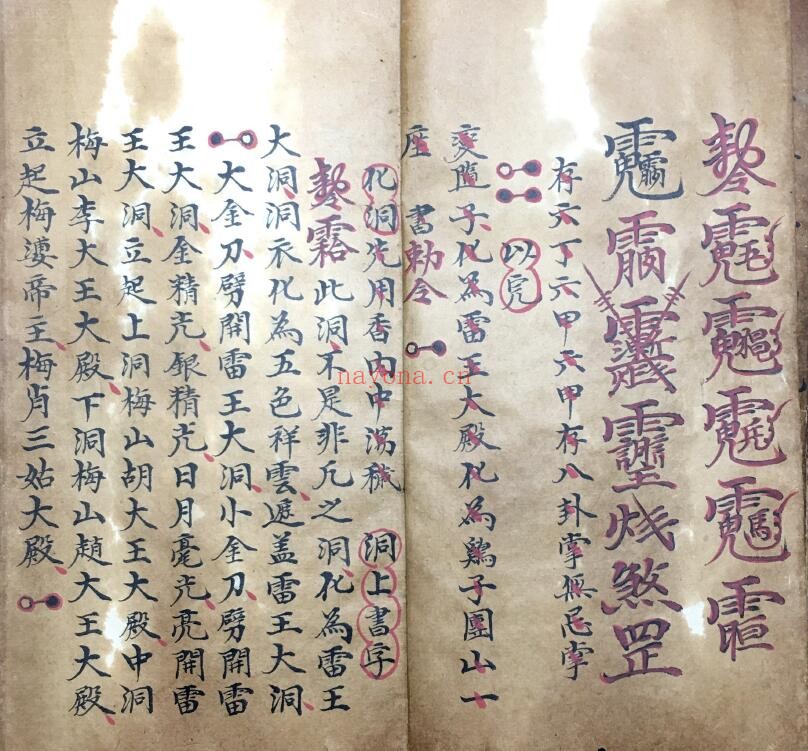 煞罡
存六丁六甲六甲存八卦掌無忌掌
以完
变隨子化為雷王大殿化為鷄子團山一
座 書勅令
化洞先用香内中蕩穢 洞上書字
此洞不是非凡之洞化為雷王
大洞洞衣化為五色祥雲遮盖雷王大洞
大金刀劈開雷王大洞小金刀劈開雷
王大洞金精光銀精光日月毫光亮開雷
王大洞立起上洞梅山胡大王大殿中洞
梅山李大王大殿下洞梅山趙大王大殿
立起梅婆帝主梅肖三姑大殿
nayona.cn